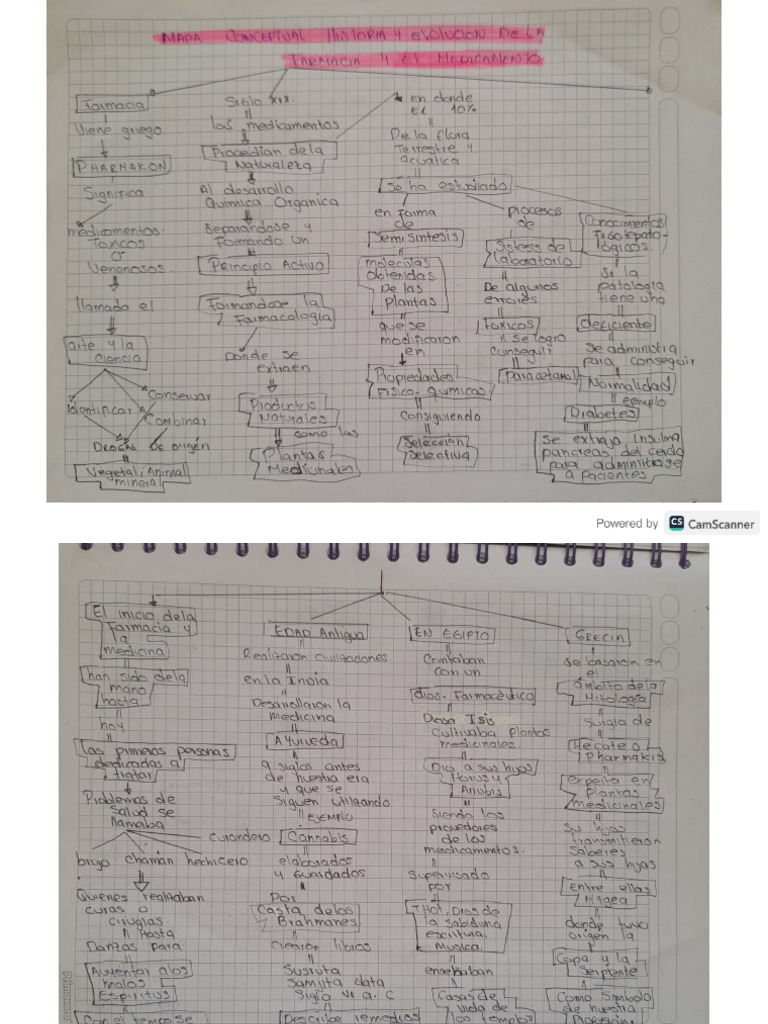 MAPA CONCEPTUAL HISTORIA Y EVOLUCION DE LA
FARMACIA Y EL MEDICAMENTO
Farmacia
Viene griego
PHARMAKON
Significa
medicamentos
Toxicos
or
Venenosos
llamado el
arte y la
Ciencia
Identificar
Conservar
Combinar
DROGAS DE origén
Vegetal, Animal
mineral
Siglo XIX.
los medicamentos
Procedian de la
Naturaleza
Al desarrollo
Quimica Organica
Separandose y
Formando un
Principio Activo
Formandose la
Farmacología
Donde se
extraen
Productos
Naturales
como las
Plantas
Medicinales
en donde
El 10%
De la flora
Terrestre y
acuatica
Se ha estudiado
en forma
de
Semisintesis
moleculas
obtenidas
De las
plantas
que se
modificaron
en
Propiedades
Fisico-quimicas
Consiguiendo
Seleccion
Selectiva
procesos
de
laboratorio
De algunos
errores
toxicos
se logro
conseguir
Paracetamol
Conocimientos
Fisiopato-
logicos.
Si la
patologia
tiene una
deficiente
Se administra
para conseguir
Normalidad
ejemplo
Diabetes
Se extrajo Insulina
pancreas del cerdo
para administrase
a Pacientes
Powered by CS CamScanner
El inicio de la
Farmacia y
la
medicina
han sido de la
mano
hasta
hoy
Las primeras personas
dedicadas a
tratar
Problemas de
Salud se
llamaba
brujo chamán hechicero
curandero
Quienes realizaban
curas o
cirugias.
Hasta
Danzas para
Aumentar a los
malos
Espiritus
Con el tiempo se
EDAD Antigua
Realizaron civilizaciones
en la India
Desarrollaron la
medicina
Ayurveda
9 siglos antes
de nuestra era
y que se
siguen utilizando
ejemplo
Cannabis
elaborados
y Guardados
Por
Casta de los
Brahmanes
Crearon libros
Susruta
Samjita data
Siglo VI a. C
Describe remedios
EN EGIPTO
Contaban
con un
dios-Farmacéutico
Diosa Isis
cultivaba plantas
medicinales.
Dio a sus hijos
Horus y
Anubis
Siendo los
proveedores
de los
medicamentos.
Supervisado
por
Thot, Dios de
la sabiduria
escritura.
Musica.
enseñaban
Casas de
Vida de
los templos
GRECIA
Se basaron en
el
ámbito de la
Mitología
Surgía de
Hecate o
Pharmakis
experta en
plantas
medicinales
Su hijas
transmitieron
Saberes
a sus hijas
Entre ellas
Higea
donde tuvo
origen la
Copa y la
Serpiente
Como Simbolo
de nuestra
Profesión
CamScanner